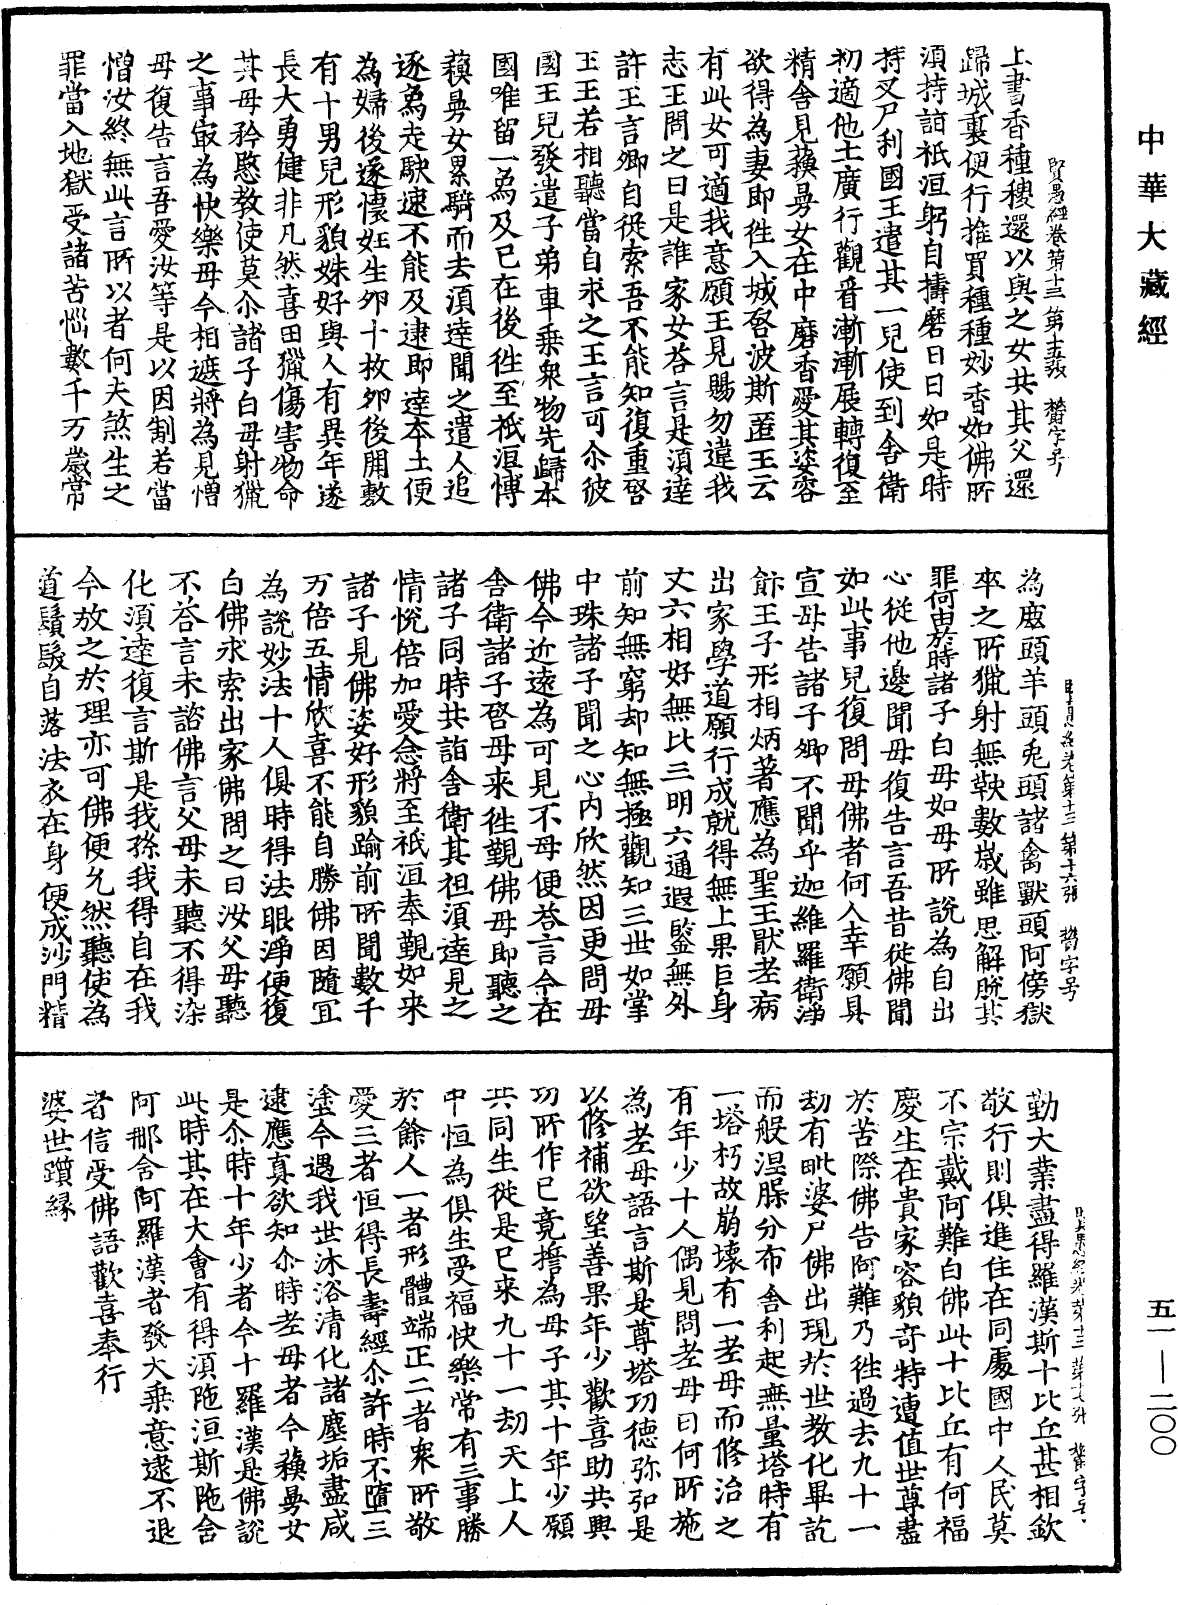 中華大藏經
五一—二〇〇
賢愚經卷第十三 第十五張 贊字号
上書香種稷還以與之女共其父還
歸城裏便行推買種種妙香如佛所
須持詣祇洹躬自擣磨日日如是時
持叉尸利國王遣其一兒使到舍衛
初適他土廣行觀看漸漸展轉復至
精舍見蘓曼女在中磨香愛其姿容
欲得為妻即往入城啓波斯匿王云
有此女可適我意願王見賜勿違我
志王問之曰是誰家女荅言是須達
許王言卿自從索吾不能知復重啓
王王若相聽當自求之王言可尒彼
國王兒發遣子弟車乗衆物先歸本
國唯留一為及已在後往至祇洹慱
蘓曼女累騎而去須達聞之遣人追
逐為走駃速不能及逮即達本土便
為婦後遂懷妊生夘十枚夘後開敷
有十男兒形貌姝好與人有異年遂
長大勇健非凡然喜田獵傷害物命
其母矜愍教使莫尒諸子白母射獵
之事㝡為快樂母今相遮將為見憎
母復告言吾愛汝等是以因制若當
憎汝終無此言所以者何夫煞生之
罪當入地獄受諸苦惱數千万歲常
賢愚經卷第十三 第十六張 贊字号
為鹿頭羊頭兎頭諸禽獸頭阿傍獄
卒之所獵射無鞅數歲雖思解脫其
罪何由於時諸子白母如母所說為自出
心從他邊聞母復告言吾昔從佛聞
如此事兒復問母佛者何人幸願具
宣母告諸子卿不聞乎迦維羅衛淨
飰王子形相炳著應為聖王猒老病
出家學道願行成就得無上果巨身
丈六相好無比三明六通遐鑒無外
前知無窮却知無極觀知三世如掌
中珠諸子聞之心內欣然因更問母
佛今近遠為可見不母便荅言今在
舍衛諸子啓母来往覲佛母即聽之
諸子同時共詣舍衛其祖須達見之
情悅倍加愛念將至祇洹奉覲如来
諸子見佛姿好形貌踰前所聞數千
万倍五情欣喜不能自勝佛因隨冝
為說妙法十人俱時得法眼淨便復
白佛求索出家佛問之曰汝父母聽
不荅言未諮佛言父母未聽不得染
化須達復言斯是我孫我得自在我
今放之於理亦可佛便允然聽使為
道鬚髮自落法衣在身便成沙門精
賢愚經卷第十三 第十七張 贊字号
勤大業盡得羅漢斯十比丘甚相欽
敬行則俱進住在同處國中人民莫
不宗戴阿難白佛此十比丘有何福
慶生在貴家容貌奇特遭值世尊盡
於苦際佛告阿難乃往過去九十一
劫有毗婆尸佛出現於世教化畢訖
而般涅槃分布舍利起無量塔時有
一塔朽故崩壞有一老母而修治之
有年少十人偶見問老母曰何所施
為老母語言斯是尊塔功德弥弘是
以修補欲望善果年少歡喜助共興
功所作已竟擔為母子其十年少願
共同生從是已来九十一劫天上人
中恒為俱生受福快樂常有三事勝
於餘人一者形體端正二者衆所敬
愛三者恒得長壽經尒許時不墮三
塗今遇我世沐浴清化諸塵垢盡咸
逮應真欲知尒時老母者今蘓曼女
是尒時十年少者今十羅漢是佛說
此時其在大會有得湏陁洹斯陁舍
阿那舍阿羅漢者發大乗意逮不退
者信受佛語歡喜奉行
婆世躓緣